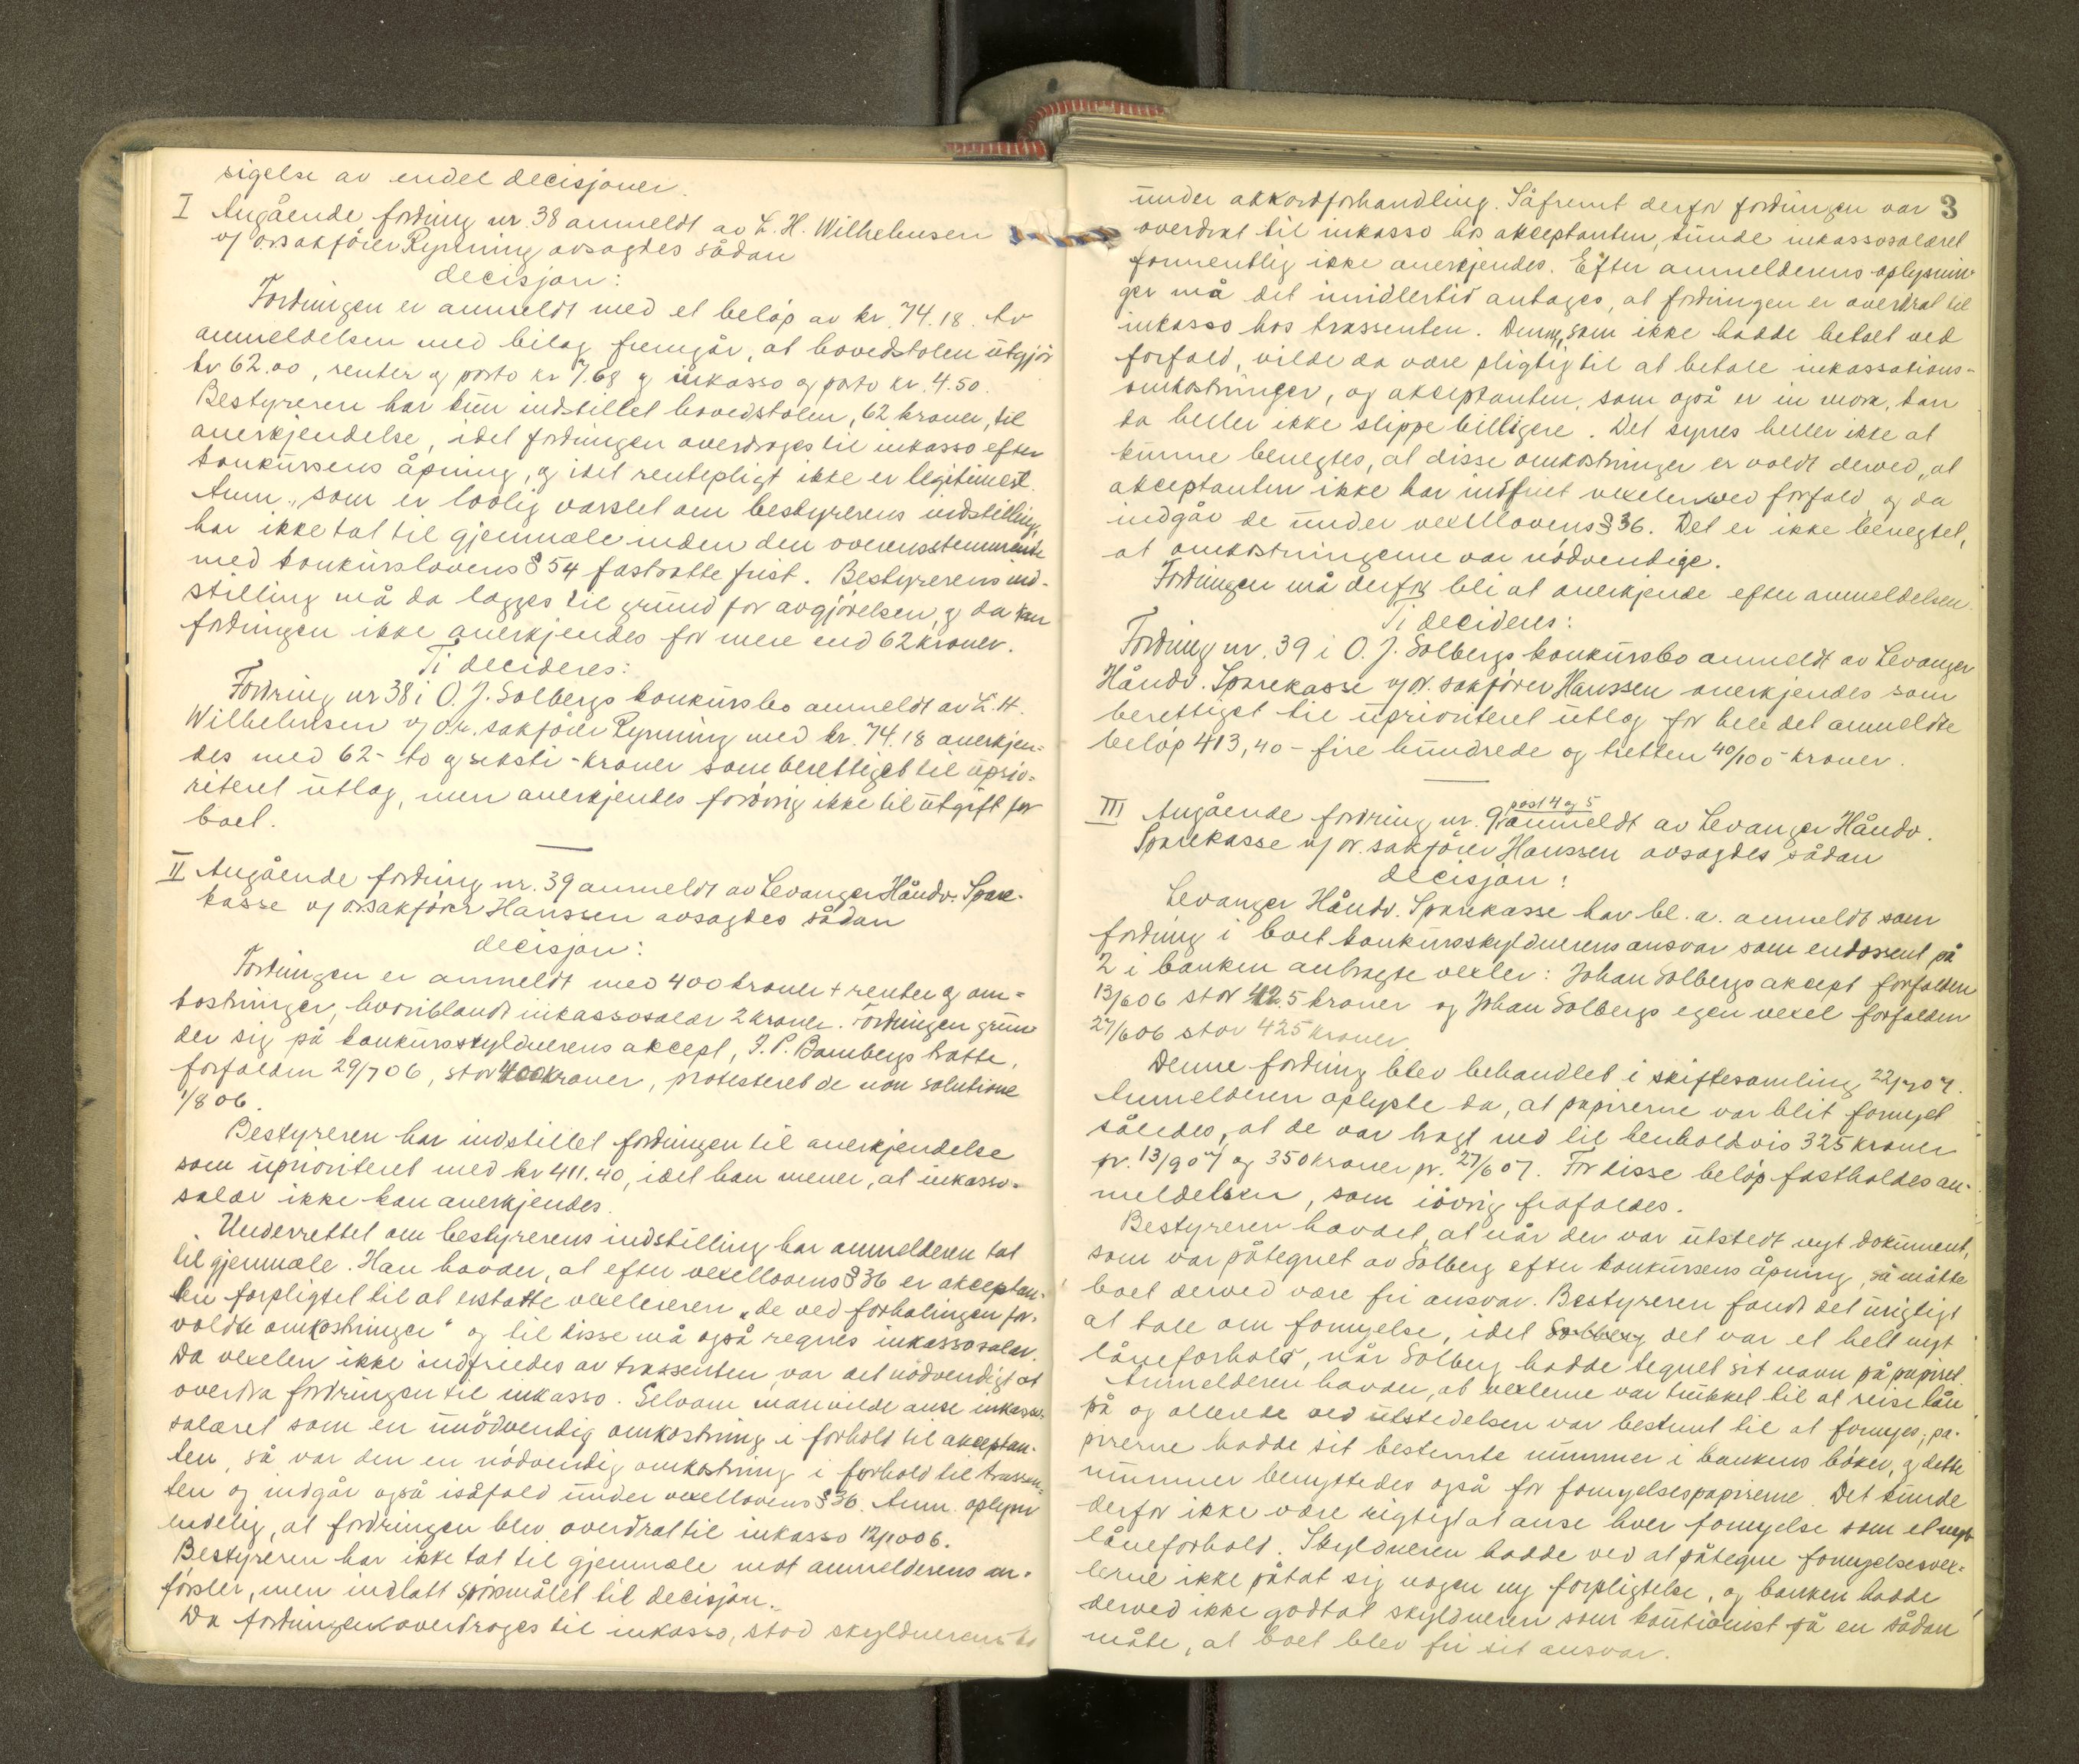 sigelse av endel decisjoner.
I Angående fordring nr. 38 anmeldt av L. H. Wilhelmsen
v/ o.r.sakfører Rynning avsagdes sådan
decisjon:
Fordringen er anmeldt med et beløp av kr. 74.18. Av
anmeldelsen med bilag fremgår, at hovedstolen utgjør
kr 62.00, renter og porto kr 7.68 og inkasso og porto kr. 4.50.
Bestyreren har kun indstillet hovedstolen, 62 kroner, til
anerkjendelse, idet fordringen overdroges til inkasso efter
konkursens åpning, og idet rentepligt ikke er legitimert.
Anm., som er lovlig varslet om bestyrerens indstilling,
har ikke tat til gjenmæle inden den overensstemmende
med konkurslovens § 54 fastsatte frist. Bestyrerens ind-
stilling må da lægges til grund for avgjørelsen, og da kan
fordringen ikke anerkjendes for mere end 62 kroner.
Ti decideres:
Fordring nr 38 i O. J. Solbergs konkursbo anmeldt av L. H.
Wilhelmsen v/ o.r. sakfører Rynning med kr. 74.18 anerkjen-
des med 62 - to og seksti - kroner som berettiget til uprio-
riteret utlæg, men anerkjendes forøvrig ikke til utgift for
boet.
II Angående fordring nr. 39 anmeldt av Levanger Håndv. Spare-
kasse v/ o.r.sakfører Hanssen avsagdes sådan
decisjon:
Fordringen er anmeldt med 400 kroner + renter og om-
kostninger, hvoriblandt inkassosalær 2 kroner. Fordringen grun-
der sig på konkursskyldnerens aksept, I. P. Bambergs tratte,
forfalden 29/7 06, stor 400 kroner, protesteret de non solutione
1/8 06.
Bestyreren har indstillet fordringen til anerkjendelse
som uprioriteret med kr 411.40, idet han mener, at inkasso-
salær ikke kan anerkjendes.
Underrettet om bestyrerens indstilling har anmelderen tat
til gjenmæle. Han hævder, at efter vexellovens § 36 er akceptan-
ten forpligtet til at erstatte vexeleieren „de ved forhalingen for-
voldte omkostninger" og til disse må også regnes inkassosalær.
Da vexelen ikke indfriedes av trassenten var det nødvendigt at
overdra fordringen til inkasso. Selvom man vilde anse inkasso-
salæret som en unødvendig omkostning i forhold til akceptan-
ten, så var den en nødvendig omkostning i forhold til trassen-
ten og indgår også isåfald under vexellovens § 36. Anm. oplyser
endelig, at fordringen blev overdrat til inkasso 12/10 06.
Bestyreren har ikke tat til gjenmæle mot anmelderens an-
førsler, men indlatt spørsmålet til decisjon.
Da fordringen overdroges til inkasso, stod skyldnerens bo
3
under akkordforhandling. Såfremt derfor fordringen var
overdrat til inkasso hos akceptanten, kunde inkassosalæret
formentlig ikke anerkjendes. Efter anmelderens oplysnin-
ger må det imidlertid antages, at fordringen er overdrat til
inkasso hos trassenten. Denne, som ikke hadde betalt ved
forfald, vilde da være pligtig til at betale inkassations-
omkostninger, og akceptanten, som også er in mora, kan
da heller ikke slippe billigere. Det synes heller ikke at
kunne benegtes, at disse omkostninger er voldt derved, at
akceptanten ikke har indfriet vexelen ved forfald, og da
indgår de under vexellovens § 36. Det er ikke benegtet,
at omkostningerne var nødvendige.
Fordringen må derfor bli at anerkjende efter anmeldelsen.
Ti decideres:
Fordring nr. 39 i O. J. Solbergs konkursbo anmeldt av Levanger
Håndv. Sparekasse v/ o.r. sakfører Hanssen anerkjendes som
berettiget til uprioriteret utlæg for hele det anmeldte
beløp 413,40 - fire hundrede og tretten 40/100 - kroner.
III Angående fordring nr. 9 post 4 og 5 anmeldt av Levanger Håndv.
Sparekasse v/ o.r. sakfører Hanssen avsagdes sådan
decisjon:
Levanger Håndv. Sparekasse har bl. a. anmeldt som
fordring i boet konkursskyldnerens ansvar som endossent på
2 i banken anbragte vexler: Johan Solbergs aksept forfalden
13/6 06 stor 425 kroner og Johan Solbergs egen vexel forfalden
27/6 06 stor 425 kroner.
Denne fordring blev behandlet i skiftesamling 22/7 07.
Anmelderen oplyste da, at papirerne var blit fornyet
således, at de var bragt ned til henholdsvis 325 kroner
pr. 13/9 07 og 350 kroner pr. 27/6 07. For disse beløp fastholdes an-
meldelsen, som iøvrig frafaldes.
Bestyreren hævdet, at når der var utstedt nyt dokument,
som var påtegnet av Solberg efter konkursens åpning, så måtte
boet derved være fri ansvar. Bestyreren fandt det urigtigt
at tale om fornyelse, idet det var et helt nyt
låneforhold, når Solberg hadde tegnet sit navn på papiret.
Anmelderen hævder, at vexlerne var trukket til at reise lån
på og allerede ved utstedelsen var bestemt til at fornyes; pa-
pirerne hadde sit bestemte nummer i bankens bøker, og dette
nummer benyttedes også for fornyelsespapirerne. Det kunde
derfor ikke være rigtigt at anse hver fornyelse som et nyt
låneforhold. Skyldneren hadde ved at påtegne fornyelsesvex-
lerne ikke påtat sig nogen ny forpligtelse, og banken hadde
derved ikke godtat skyldneren som kautionist på en sådan
måte, at boet blev fri sit ansvar.